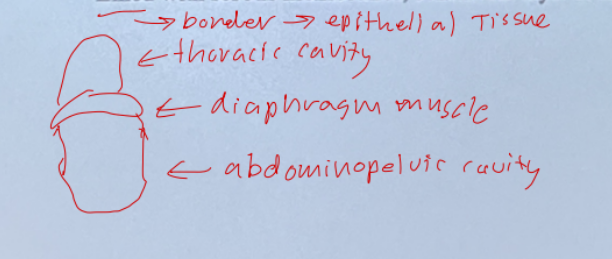 → border → epithelial Tissue
← thoracic cavity
← diaphragm muscle
← abdominopelvic cavity